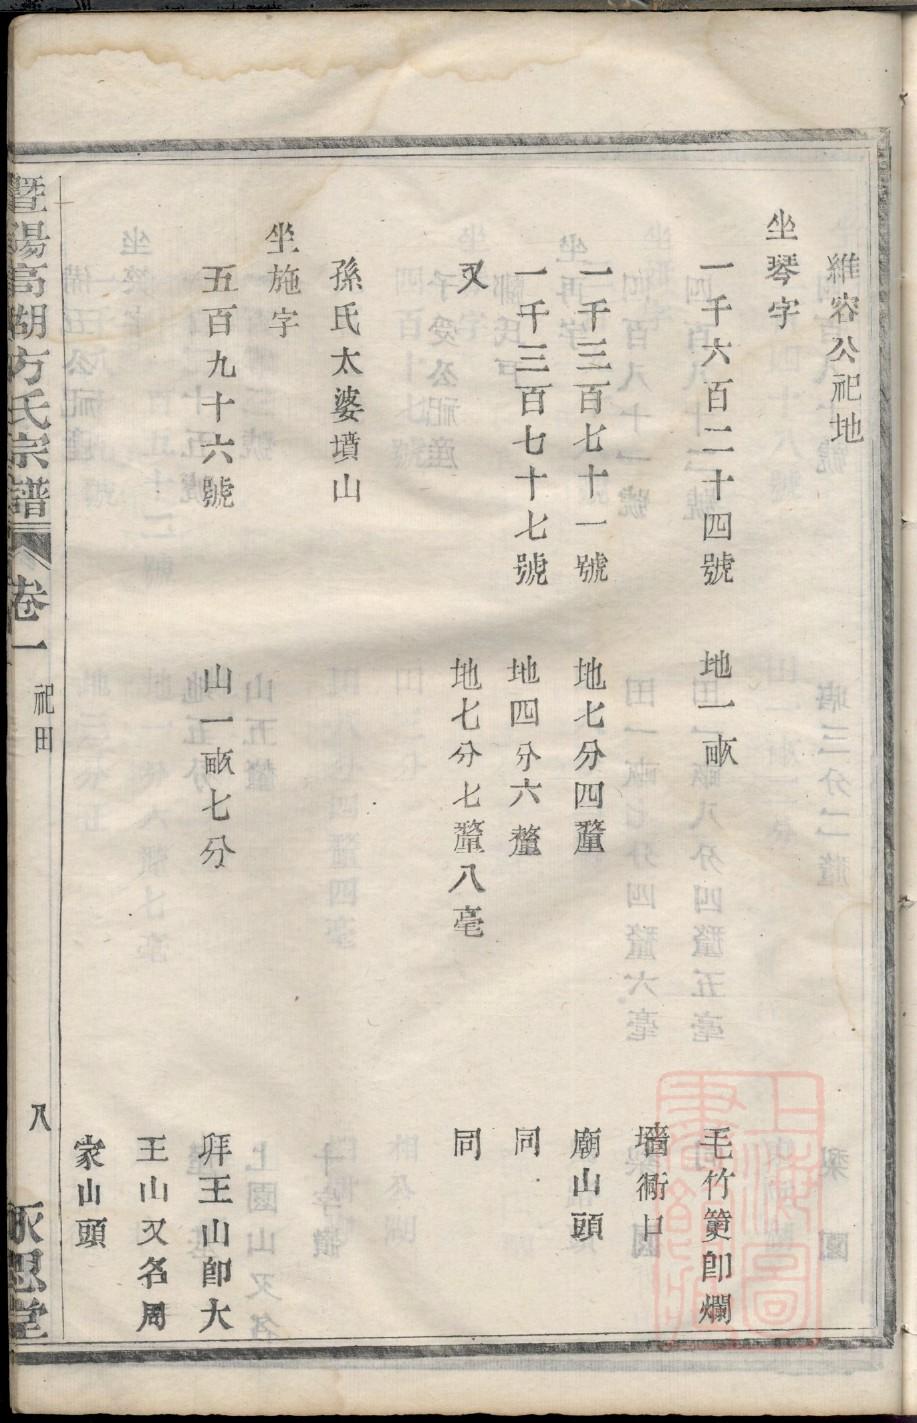 維容公祀地
坐琴字
一千六百二十四號　地一畝　毛竹䉵卽爛
墻衕口
一千三百七十一號　地七分四釐　廟山頭
一千三百七十七號　地四分六釐　同
又　地七分七釐八毫　同
孫氏太婆墳山
坐施字
五百九十六號　山一畝七分　拜王山卽大
王山又名周
家山頭
暨陽高湖方氏宗譜　卷一　祀田　八　永思堂
上海圖書館藏